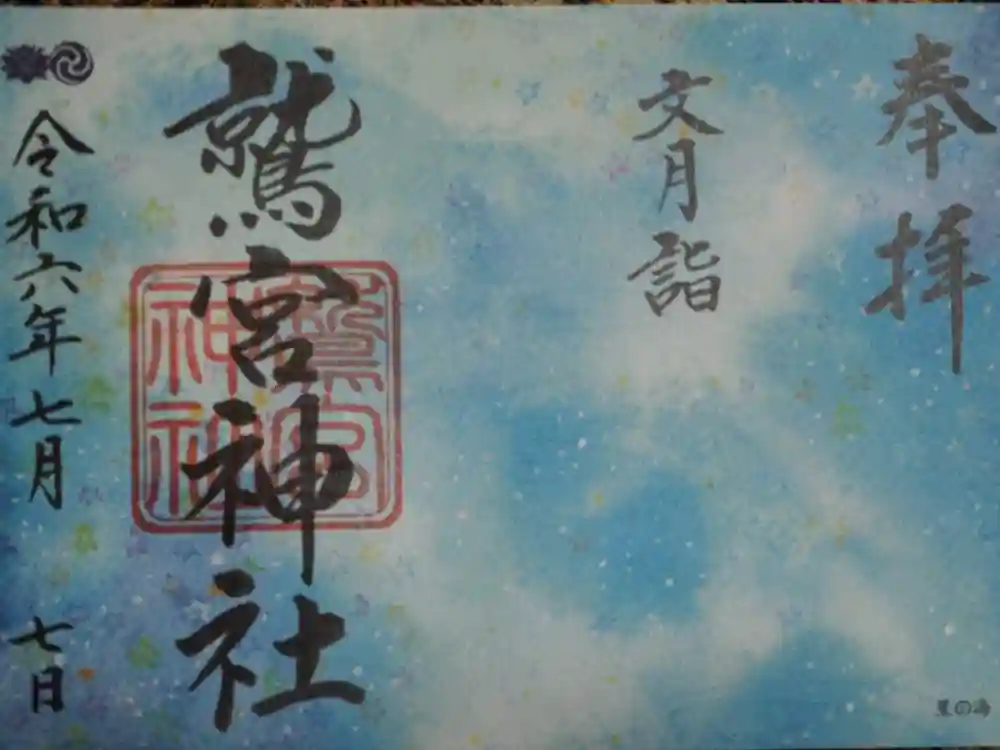 奉拝
文月詣
鷲宮神社
鷲宮
神社
令和六年七月 七日
星の海